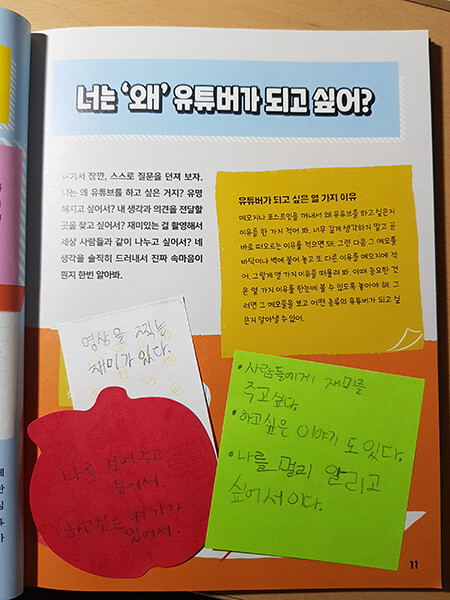 너는 '왜' 유튜버가 되고 싶어?
여기서 잠깐, 스스로 질문을 던져 보자.
나는 왜 유튜브를 하고 싶은 거지? 유명
해지고 싶어서? 내 생각과 의견을 전달할
곳을 찾고 싶어서? 재미있는 걸 촬영해서
세상 사람들과 같이 나누고 싶어서? 네
생각을 솔직히 드러내서 진짜 속마음이
뭔지 한번 알아봐.
유튜버가 되고 싶은 열 가지 이유
메모지나 포스트잇을 꺼내서 왜 유튜브를 하고 싶은지
이유를 한 가지 적어 봐. 너무 깊게 생각하지 말고 곧
바로 떠오르는 이유를 적으면 돼. 그런 다음 그 메모를
바닥이나 벽에 붙여 놓고 또 다른 이유를 메모지에 적
어. 그렇게 열 가지 이유를 떠올려 봐. 이때 중요한 것
은 열 가지 이유를 한눈에 볼 수 있도록 놓아야 해. 그
러면 그 메모들을 보고 어떤 종류의 유튜버가 되고 싶
은지 알아낼 수 있어.
영상을 찍는
재미가 있다.
나를 보여주고
싶어서.
하고싶은 얘기가
있어서.
• 사람들에게 재미를
주고싶다.
• 하고싶은 이야기도 있다.
• 나를 멀리 알리고
싶어서이다.
11